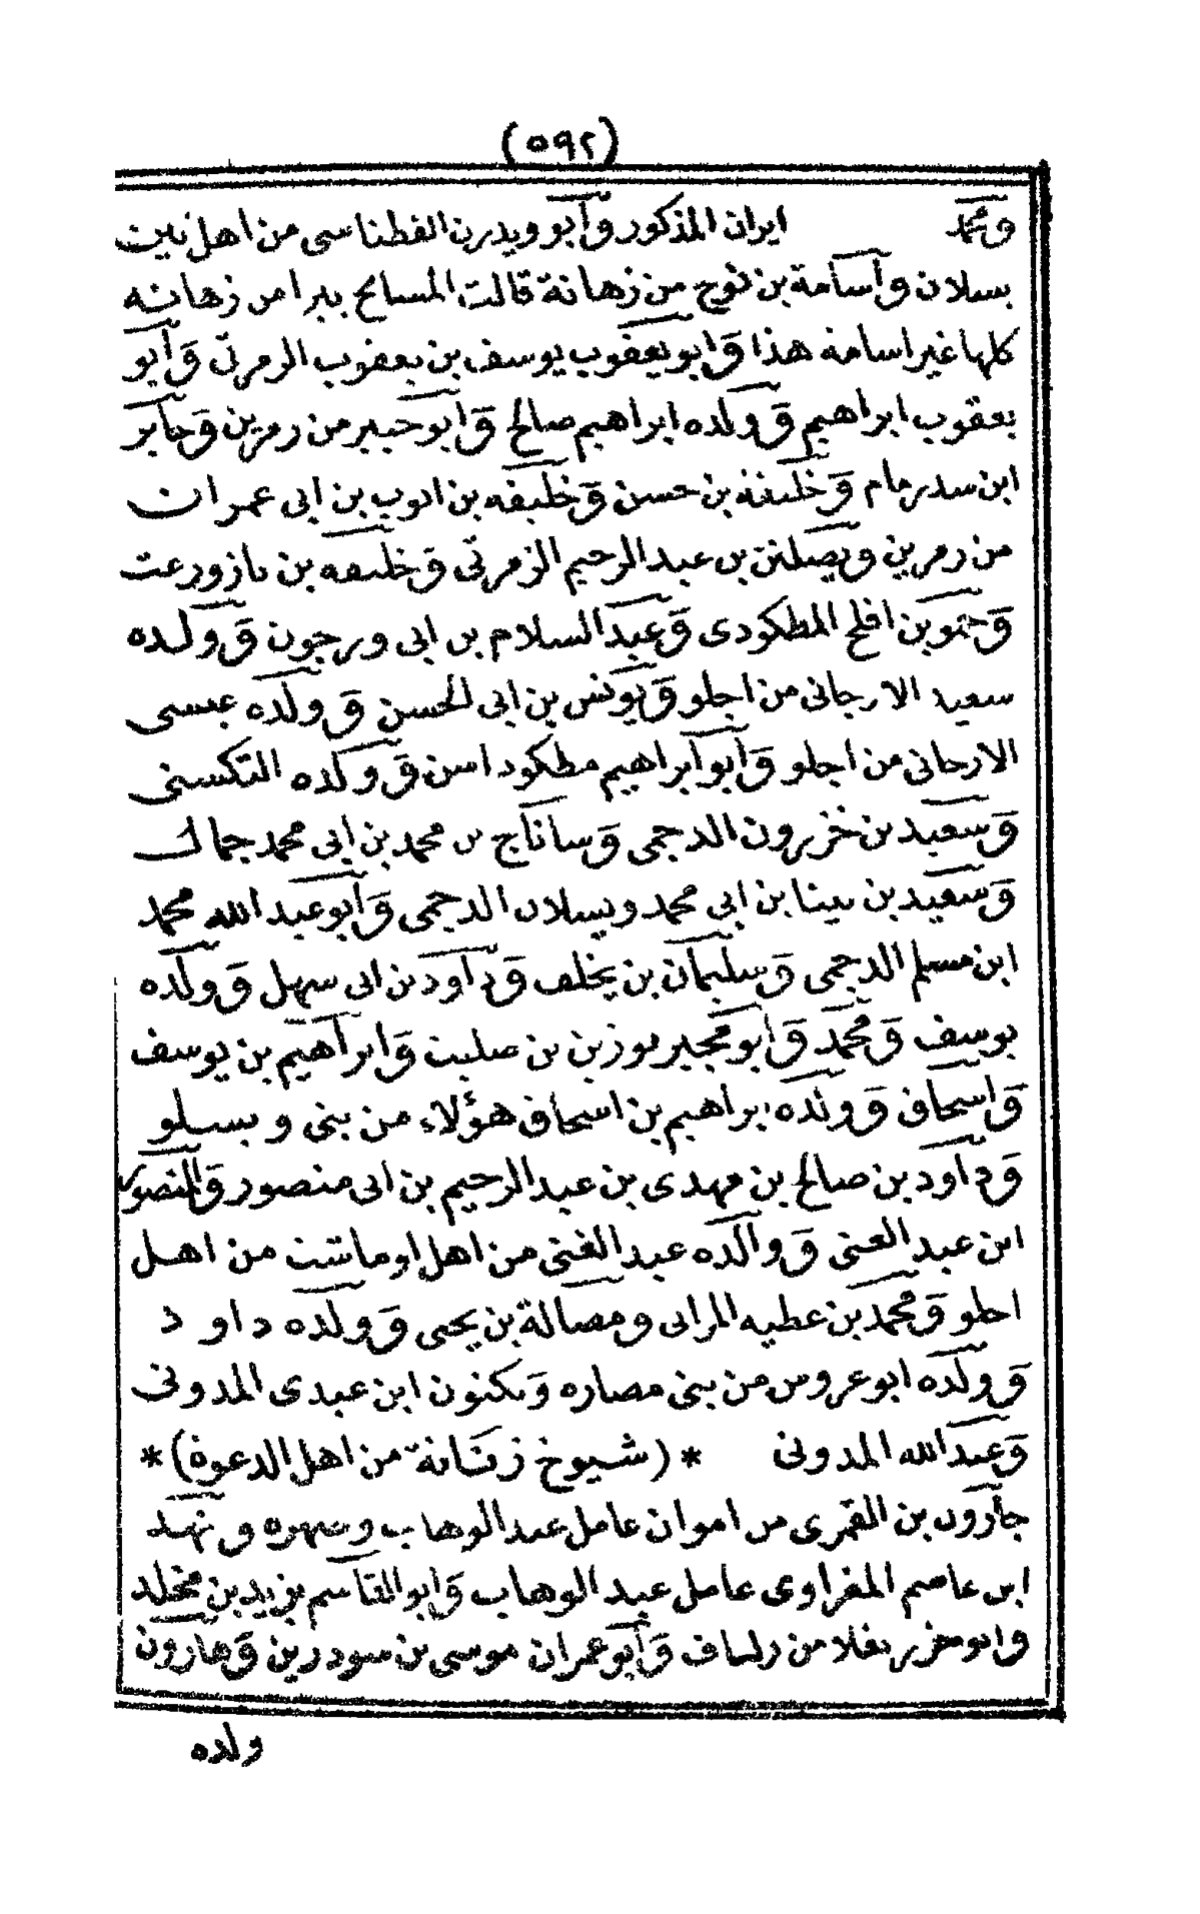 (٥٩٢)
ومحمد ايران المذكور وأبو ويدرن الفطناسى من اهل
بسلان وأسامة بن نوح من زهانة قالت المسايح من زهانه
كلها غير اسامه هذا وابو يعقوب يوسف بن يعقوب الزمرتى وأبو
يعقوب ابراهيم وولده ابراهيم صالح وابو من زمرين وجابر
ابن سدرمام وخليفه بن حسن وخليفه بن ايوب بن ابى عمران
من زمرين بن عبد الرحيم الزمرتى وخليفه بن
بن افلح المطكودى وعبد السلام بن ابى ورجون وولده
سعيد الارجانى من اجلو ويونس بن ابى الحسن وولده عيسى
الارجانى من اجلو وأبو ابراهيم مطكوداسن وولده
وسعيد بن خزرون الدجمى وساناج بن محمد بن ابى محمد جمال
وسعيد بن بينا بن ابى محمد ويسلان الدجمى وأبو عبد الله محمد
ابن مسلم الدجمى وسليمان بن يخلف وداود بن ابى سهل وولده
يوسف ومحمد وابو مجبر بوزين بن صليت وابراهيم بن يوسف
واسحاق وولده ابراهيم بن اسحاق هؤلاء من بنى ويسلو
وداود بن صالح بن مهدى بن عبد الرحيم بن ابى منصور والمنصور
ابن عبد الغنى ووالده عبد الغنى من اهل من اهل
اجلو ومحمد بن عطيه المزاتى ومصالة بن يحيى وولده داود
وولده ابو عروس من بنى مصاره ويكنون ابن عبدى المدونى
وعبد الله المدونى * (شيوخ زناتة من اهل الدعوة) *
جارون بن القمرى من اموان عامل عبد الوهاب
ابن عاصم المغراوى عامل عبد الوهاب وابو القاسم يزيد بن مخلد
وابو خزر يغلا من وأبو عمران موسى بن سودرين وهارون
ولده